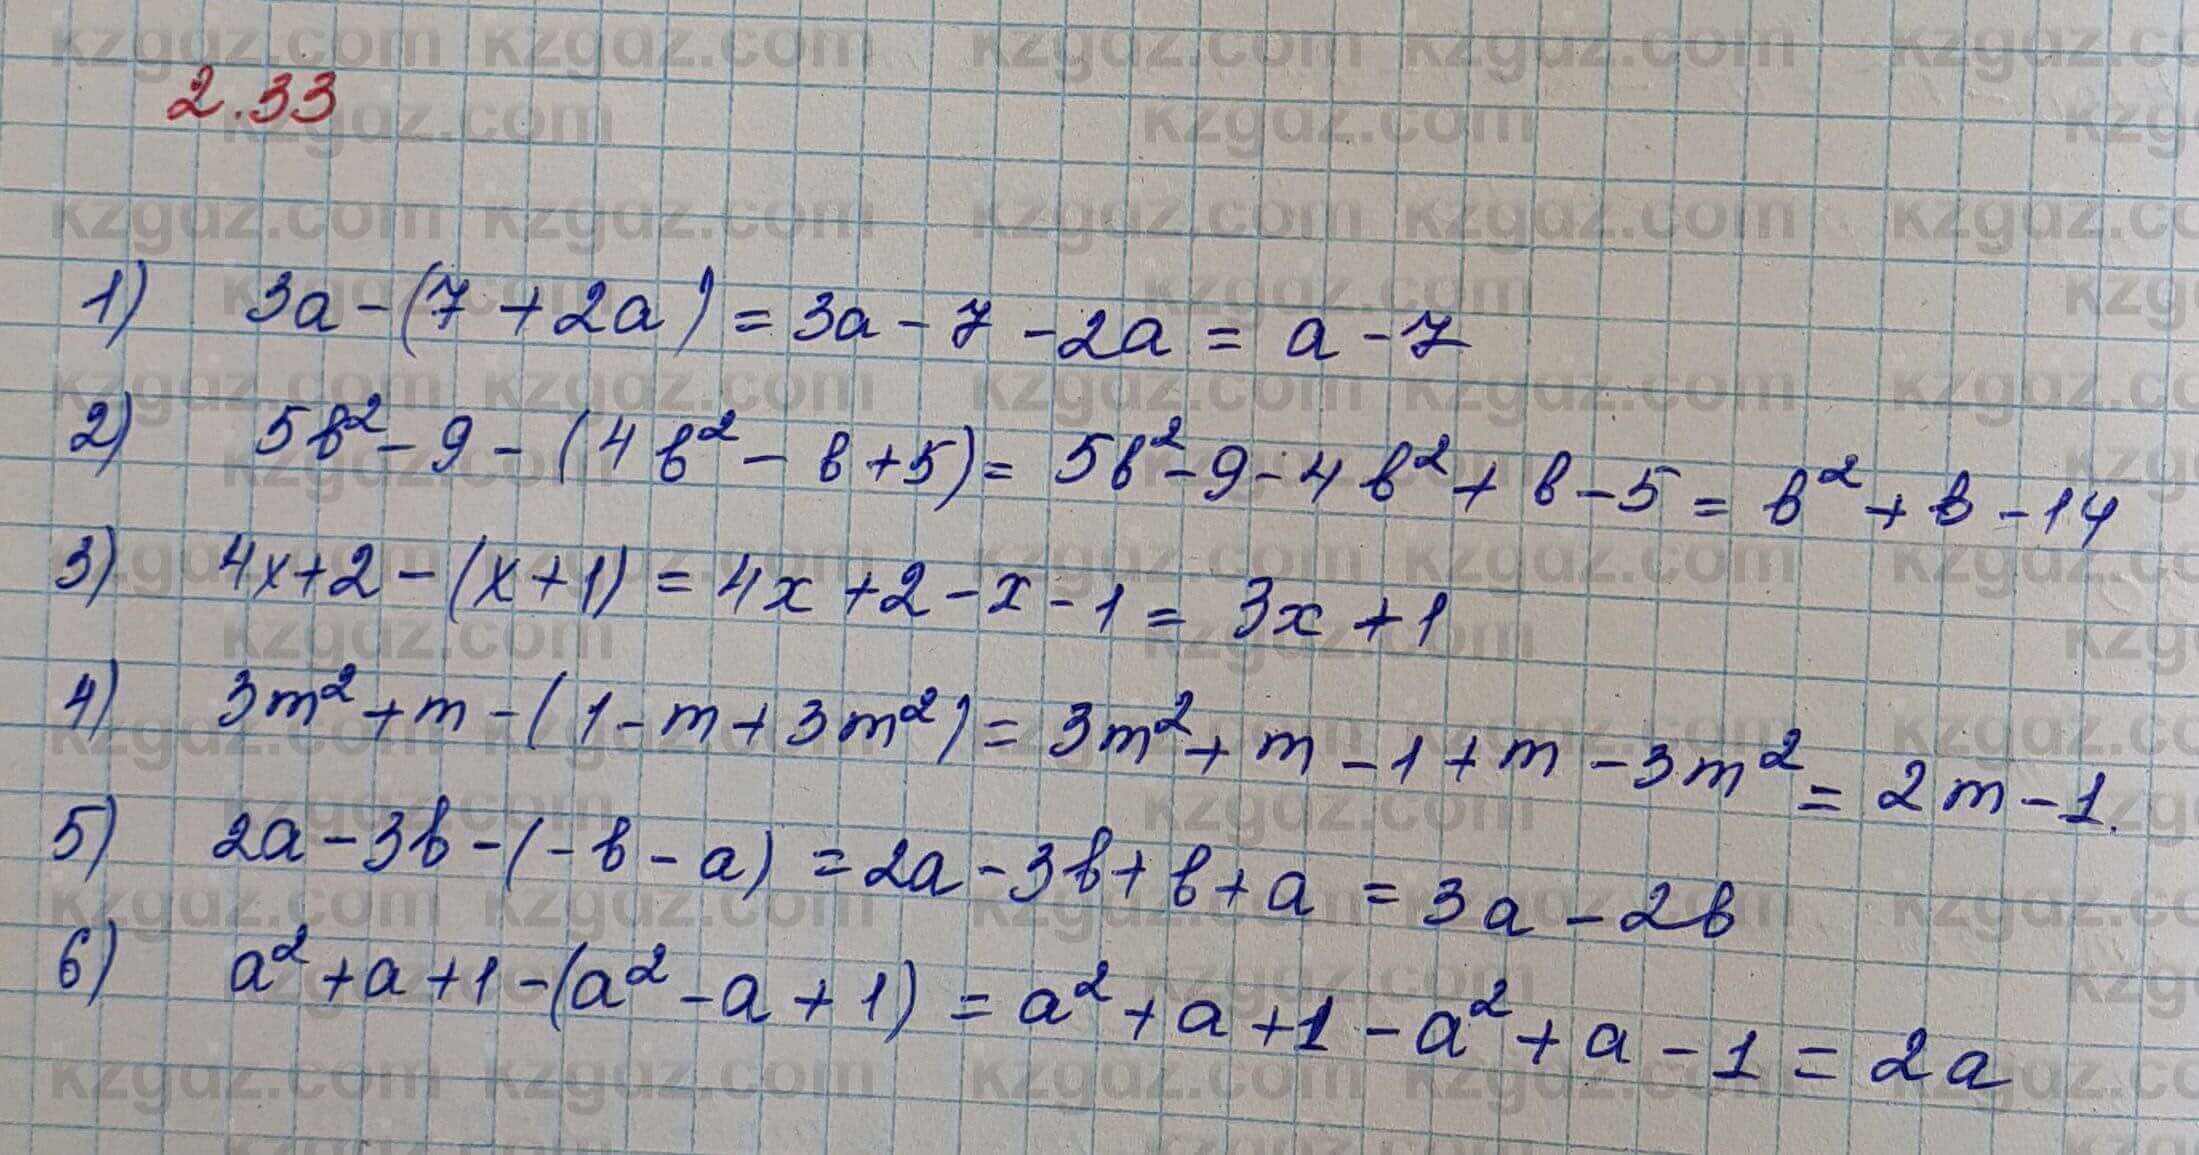 2.33
1) 3a - (7 + 2a) = 3a - 7 - 2a = a - 7
2) 5b² - 9 - (4b² - b + 5) = 5b² - 9 - 4b² + b - 5 = b² + b - 14
3) 4x + 2 - (x + 1) = 4x + 2 - x - 1 = 3x + 1
4) 3m² + m - (1 - m + 3m²) = 3m² + m - 1 + m - 3m² = 2m - 1.
5) 2a - 3b - (-b - a) = 2a - 3b + b + a = 3a - 2b
6) a² + a + 1 - (a² - a + 1) = a² + a + 1 - a² + a - 1 = 2a
kzgdz.com